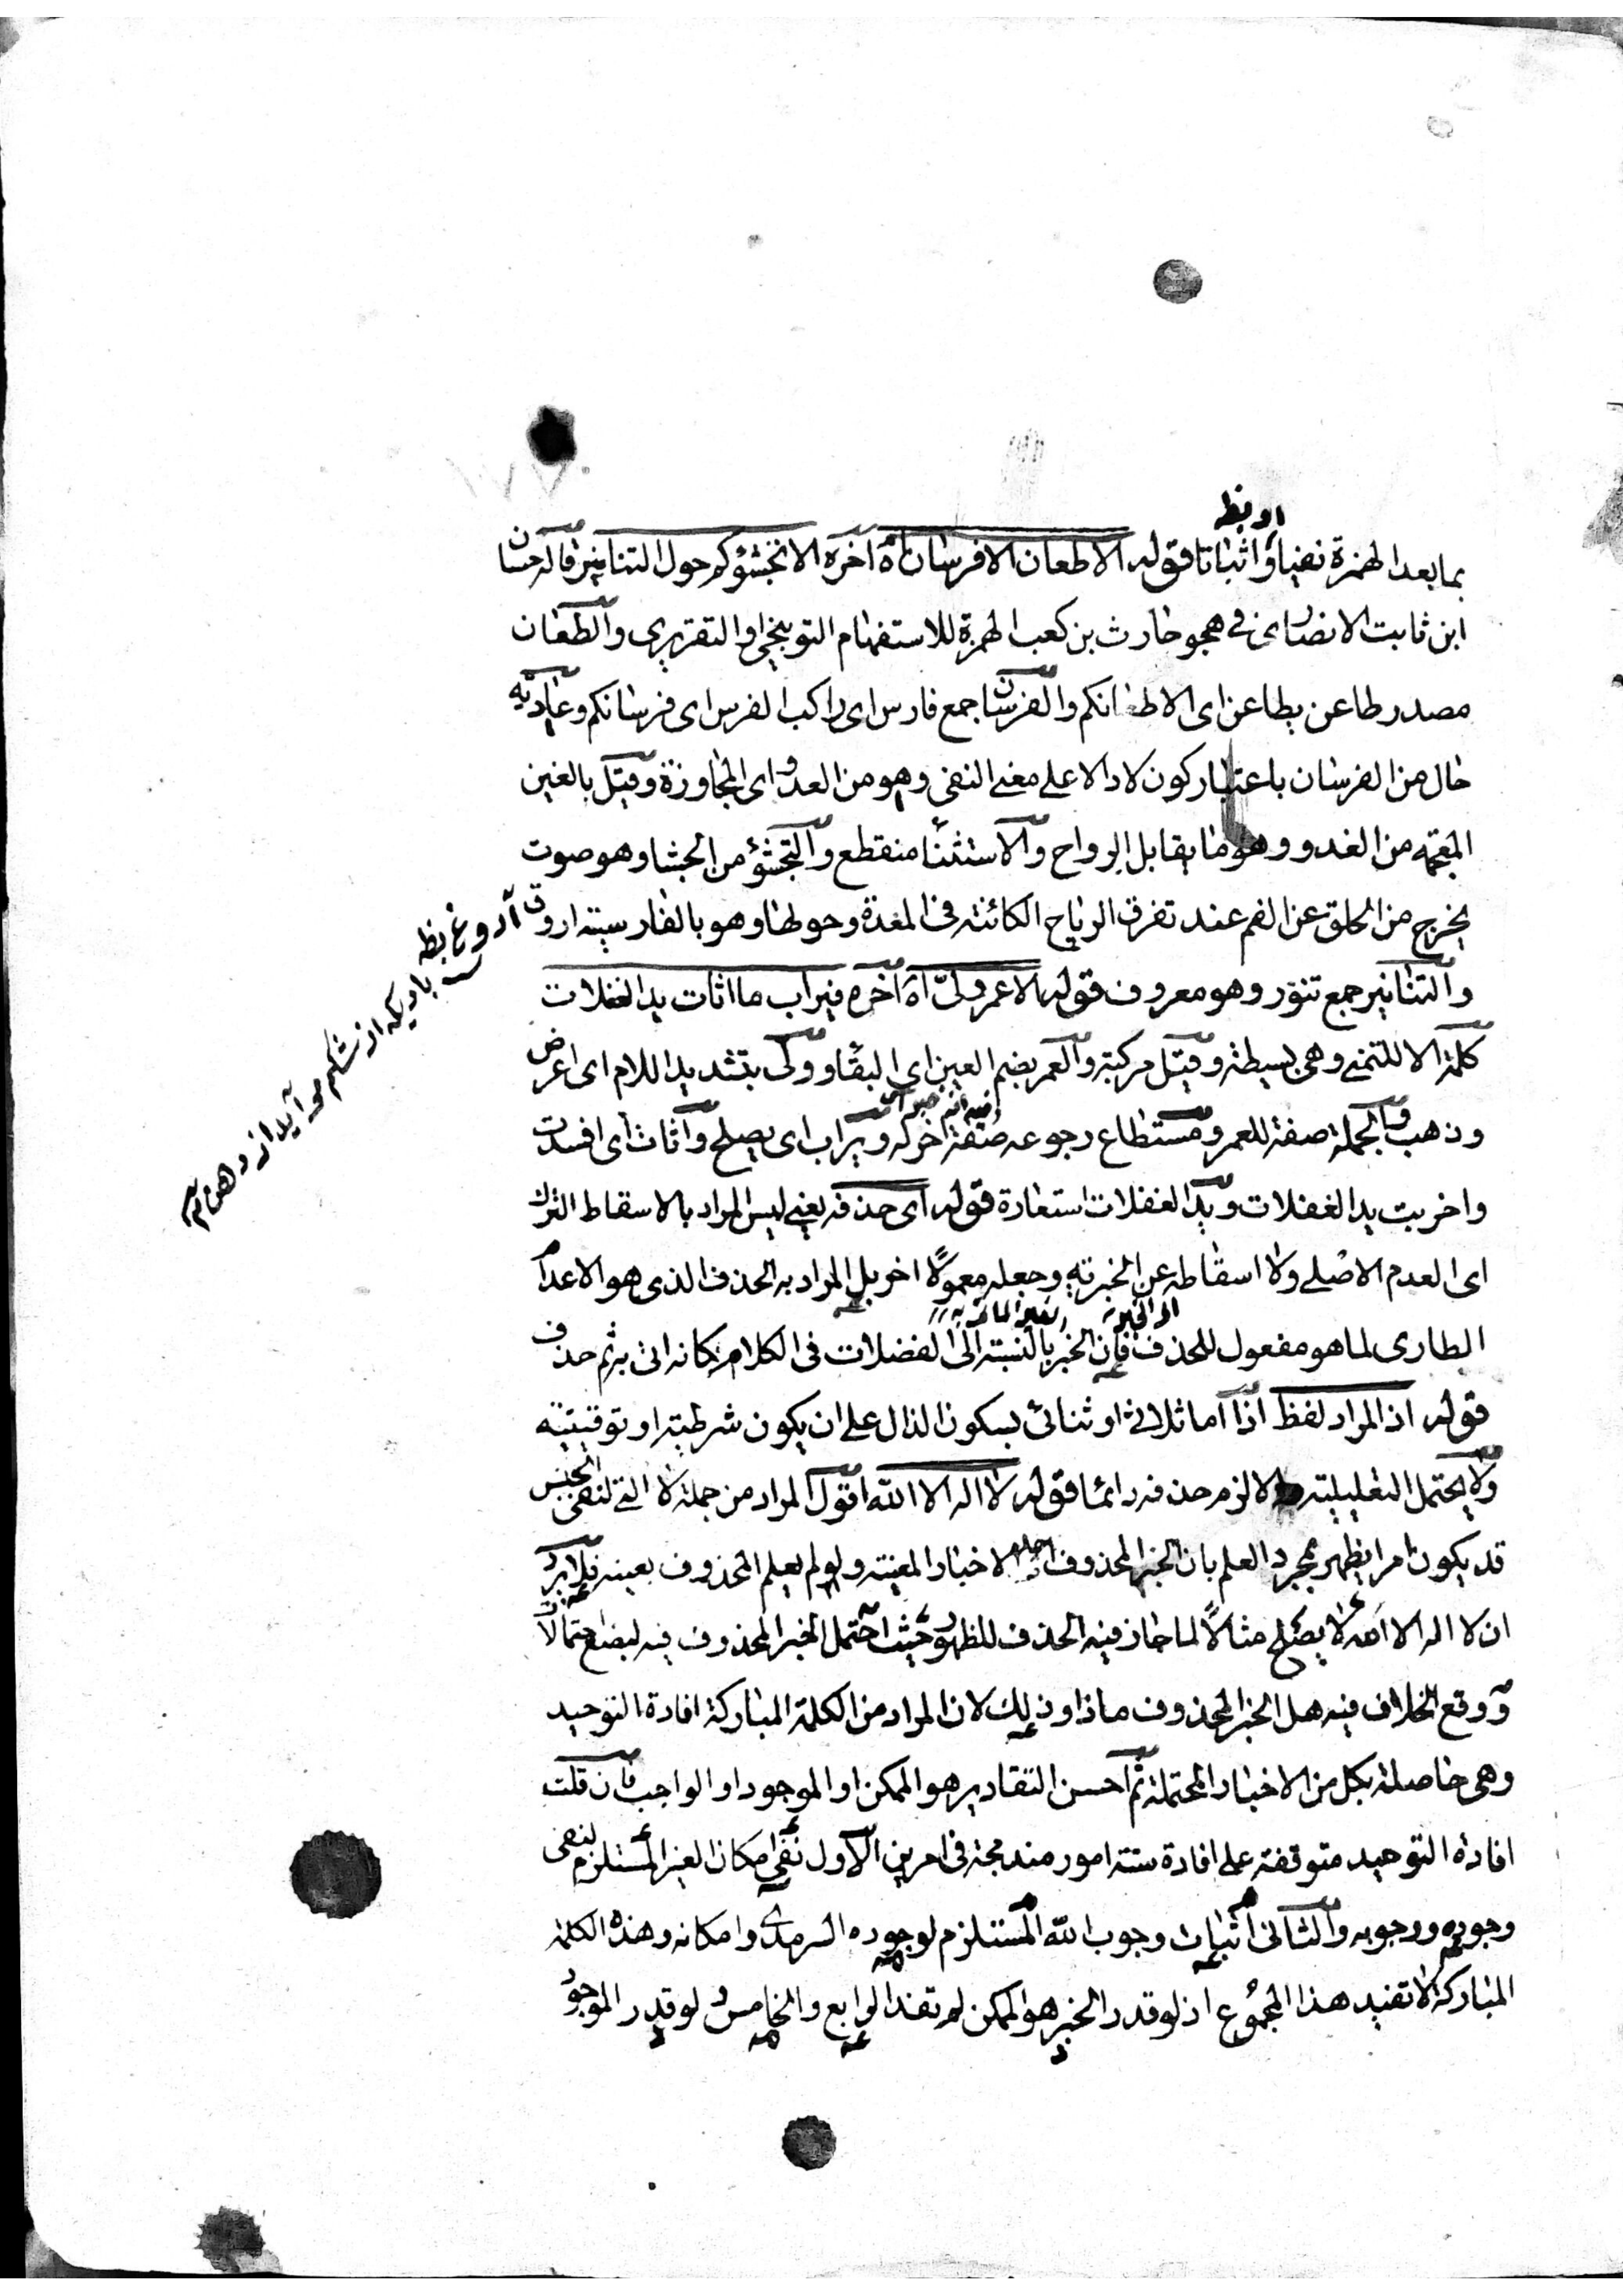 او بظ
بما بعد الهمزة نفيا واثباتا قوله الا طعان الا فرسان اه آخره الا تجشؤكم حول التنانير قاله حسان
ابن ثابت الانصاری فی هجو حارث بن كعب الهمزة للاستفهام التوبيخی او التقريری والطعان
مصدر طاعن يطاعن ای الا طعانكم والفرسان جمع فارس ای راكب الفرس ای فرسانكم وعادية
حال من الفرسان باعتبار كون لا دالا علی معنی النفی وهو من العدو ای المجاوزة وقيل بالغين
المعجمة من الغدو وهو ما يقابل الرواح والاستثنا منقطع والتجشؤ من الجشا وهو صوت
يخرج من الحلق عن الفم عند تفرق الرياح الكائنة فی المعدة وحولها وهو بالفارسية اروق
آروغ بظ
باديكه از شكم می آيد از دهن
والتنانير جمع تنور وهو معروف قوله الا عمر ولّی اه آخره فيراب ما اثات يد الغفلات
كلمة الا للتمنی وهی بسيطة وقيل مركبة والعمر بضم العين ای البقا وولی بتشديد اللام ای اعرض
وذهب والجملة صفة للعمر ومستطاع رجوعه صفة اخری له ويراب ای يصلح واثات ای افسدت
واخربت يد الغفلات ويد الغفلات استعارة قوله ای حذفه يعنی ليس المراد بالاسقاط الترك
ای العدم الاصلی ولا اسقاطه عن الخبرية وجعله معمولًا اخر بل المراد به الحذف الذی هو الاعدام
الطاری لما هو مفعول للحذف فان الخبر بالنسبة الی الفضلات فی الكلام فكانه اتی به ثم حذف
قوله اذ المراد لفظ اذا اما ثلاثی او ثنائی بسكون الذال علی ان يكون شرطية او توقيتية
ولا يحتمل التعليلية والا لزم حذفه دائما قوله لا اله الا الله اقول المراد من جملة لا التی لنفی الجنس
قد يكون امرا يظهر بمجرد العلم بان الخبر المحذوف احد الاخبار المعينة ولو لم يعلم المحذوف بعينه فلا يرد
ان لا اله الا الله لا يصلح مثالًا لما جاز فيه الحذف للظهور حيث احتمل الخبر المحذوف فيه لبضع احتمالات
ووقع الخلاف فيه هل الخبر المحذوف ماذا وذلك لان المراد من الكلمة المباركة افادة التوحيد
وهی حاصلة بكل من الاخبار المحتملة ثم احسن التقادير هو الممكن او الموجود او الواجب فان قلت
افادة التوحيد متوقفة علی افادة ستة امور مندمجة فی امرين الاول نفی امكان الغير المستلزم لنفی
وجوده ووجوبه والثانی اثبات وجوب الله المستلزم لوجوده السرمدی وامكانه وهذه الكلمة
المباركة لا تفيد هذا المجموع اذ لو قدر الخبر هو الممكن لم تفد الرابع والخامس ولو قدر الموجود